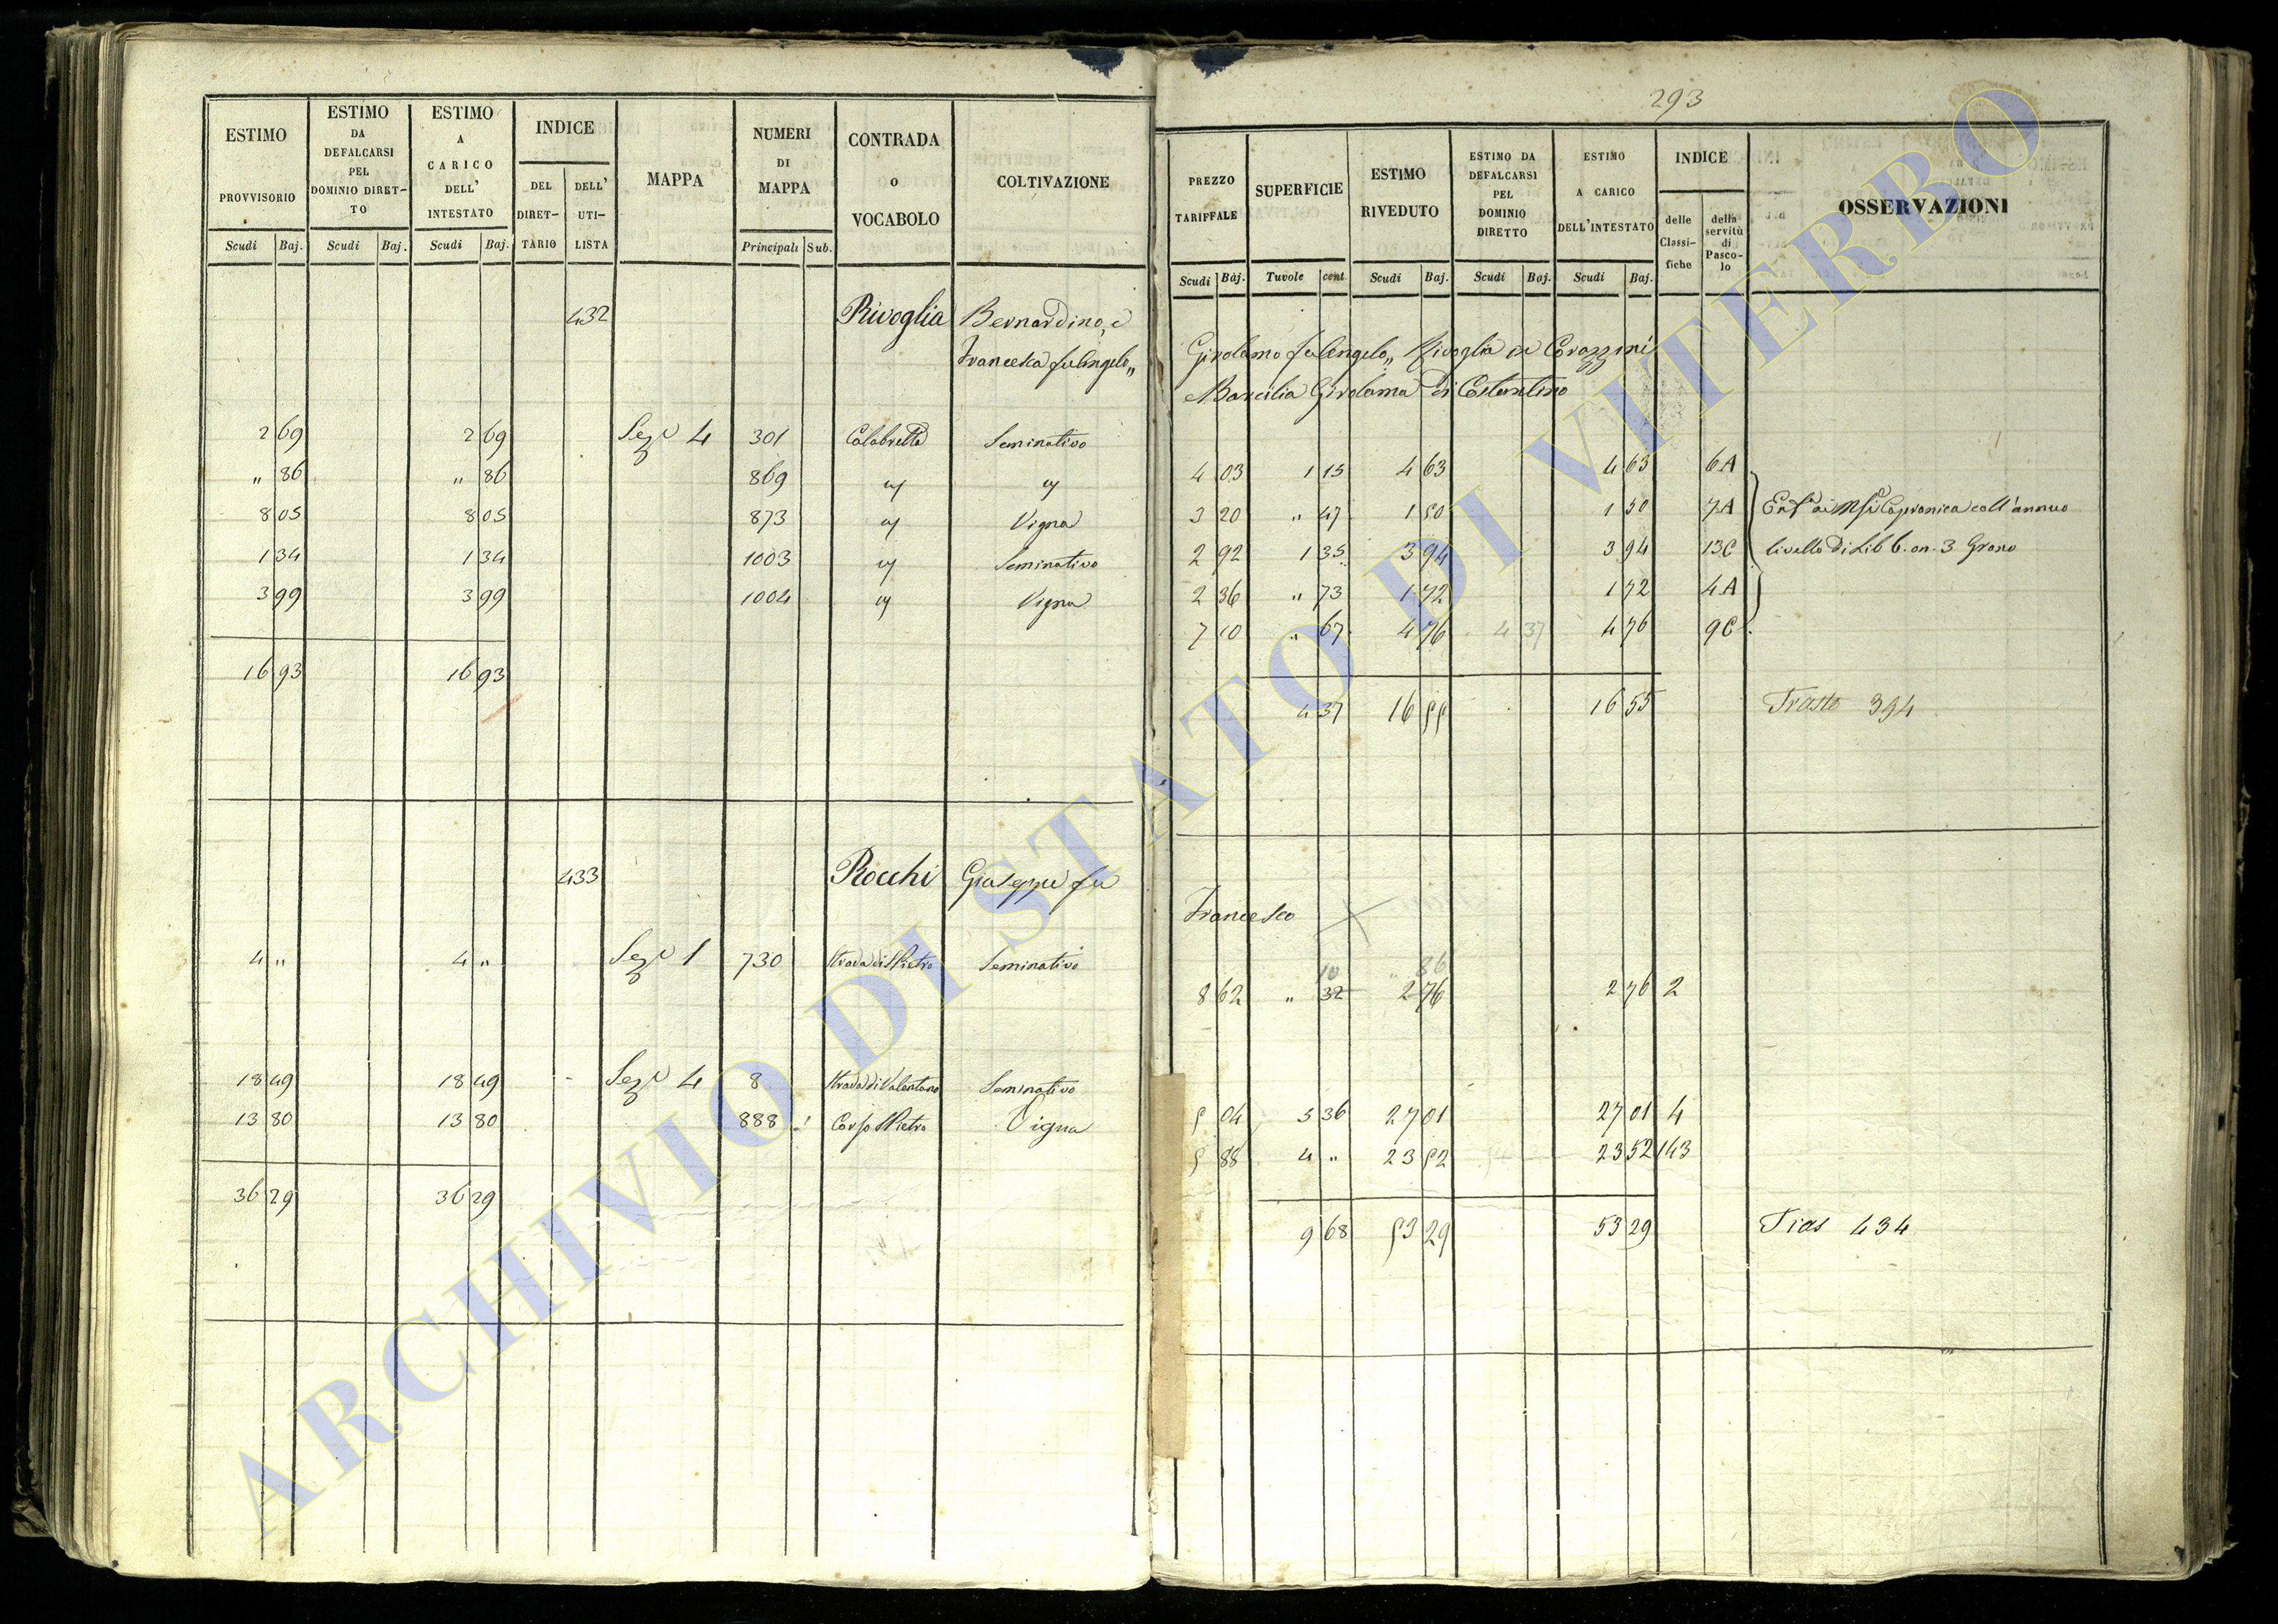 293
ESTIMO PROVVISORIO Scudi Baj.
ESTIMO DA DEFALCARSI PEL DOMINIO DIRET-TO Scudi Baj.
ESTIMO A CARICO DELL' INTESTATO Scudi Baj.
INDICE DEL DIRET-TARIO DELL' UTI-LISTA
MAPPA
NUMERI DI MAPPA Principali Sub.
CONTRADA o VOCABOLO
COLTIVAZIONE
432 Rivoglia Bernardino, e
Francesca fu Angelo,,
2 69 2 69 Sez.e 4 301 Calabrette Seminativo
" 86 " 86 869 " "
8 05 8 05 873 " Vigna
1 34 1 34 1003 " Seminativo
3 99 3 99 1004 " Vigna
16 93 16 93
433 Rocchi Giuseppe fu
4 " 4 " Sez.e 1 730 Strada di S Pietro Seminativo
18 49 18 49 Sez.e 4 8 Strada di Valentano Seminativo
13 80 13 80 888 Corso S Pietro Vigna
36 29 36 29
PREZZO TARIFFALE Scudi Baj.
SUPERFICIE Tavole cent
ESTIMO RIVEDUTO Scudi Baj.
ESTIMO DA DEFALCARSI PEL DOMINIO DIRETTO Scudi Baj.
ESTIMO A CARICO DELL'INTESTATO Scudi Baj.
INDICE delle Classi-fiche della servitù di Pasco-lo
OSSERVAZIONI
Girolamo fu Angelo,, Rivoglia in Corazzini
Marcilia Girolama di Costantino
4 03 1 15 4 63 4 63 6A
3 20 " 47 1 50 1 50 7A Capranica coll'annuo
2 92 1 35 3 94 3 94 13C livello di Lib 6. on. 3 Grano
2 36 " 73 1 72 1 72 4A
7 10 " 67 4 76 4 37 4 76 9C
4 37 16 55 16 55 Trasto 394
Francesco
10 " 86
8 62 " 32 2 76 2 76 2
5 04 5 36 27 01 27 01 4
5 88 4 " 23 52 23 52 143
9 68 53 29 53 29 Tras 434
ARCHIVIO DI STATO DI VITERBO